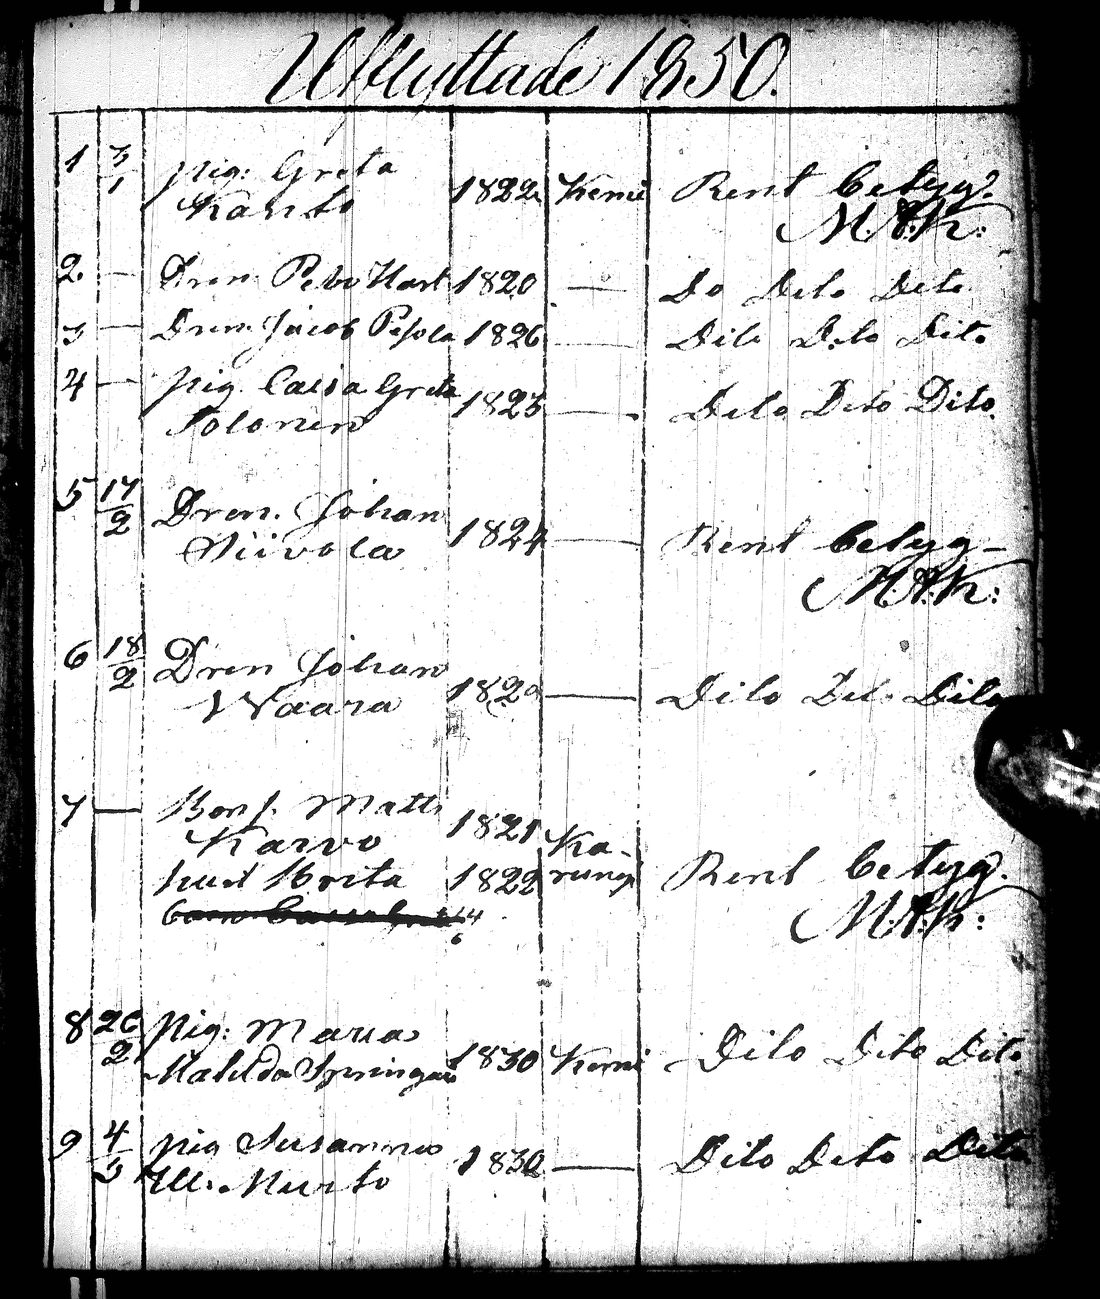 Utflyttade 1850.
1 3/1 pig: Greta
Kaisto 1822 Kemi Rent betyg.
M.A.K:
2. — Dren Petr Hart 1820 — Do Dito Dito
3 — Dren. Jacob Pesola 1826 — Dito Dito Dito
4 — pig. Caisa Greta
Tolonen 1823 — Dito Dito Dito.
5 17/2 Dren. Johan
Niivola 1824 — Rent betyg
M.A.K:
6 18/2 Dren Johan
Waara 182 — Dito Dito Dito
7 — Bons. Matts
Karvo 1821 Ka-
hust Brita 1822 rungi Rent betyg.
M.A.K:
8 26/2 pig: Maria
Matilda 1830 Kemi Dito Dito Dito
9 4/3 pig Susanna
Ull. Murto 1830 — Dito Dito Dito